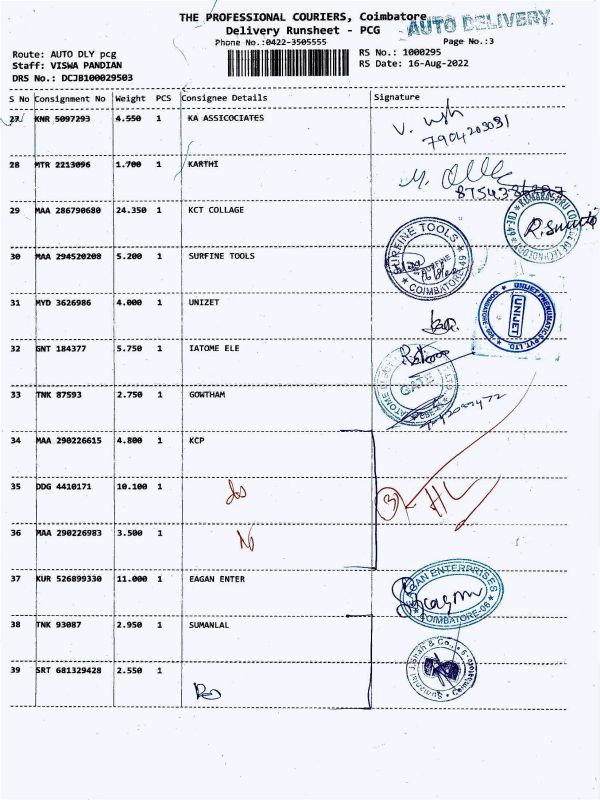 THE PROFESSIONAL COURIERS, Coimbatore
AUTO DELIVERY.
Delivery Runsheet - PCG
Phone No.:0422-3505555
Page No.:3
Route: AUTO DLY pcg
RS No.: 1000295
Staff: VISWA PANDIAN
RS Date: 16-Aug-2022
DRS No.: DCJB100029503
S No Consignment No Weight PCS Consignee Details Signature
27 KNR 5097293 4.550 1 KA ASSICOCIATES
7904203031
28 MTR 2213096 1.700 1 KARTHI
29 MAA 286790680 24.350 1 KCT COLLAGE
30 MAA 294520208 5.200 1 SURFINE TOOLS
SURFINE TOOLS
COIMBATORE-49
31 MYD 3626986 4.000 1 UNIZET
UNIJET PHENUMATICS PVT. LTD.
UNIJET
32 GNT 184377 5.750 1 IATOME ELE
GATE
33 TNK 87593 2.750 1 GOWTHAM
34 MAA 290226615 4.800 1 KCP
35 DDG 4410171 10.100 1
36 MAA 290226983 3.500 1
37 KUR 526899330 11.000 1 EAGAN ENTER
EAGAN ENTERPRISES
COIMBATORE-06
38 TNK 93087 2.950 1 SUMANLAL
Sumanlal J.Shah & Co.,
39 SRT 681329428 2.550 1